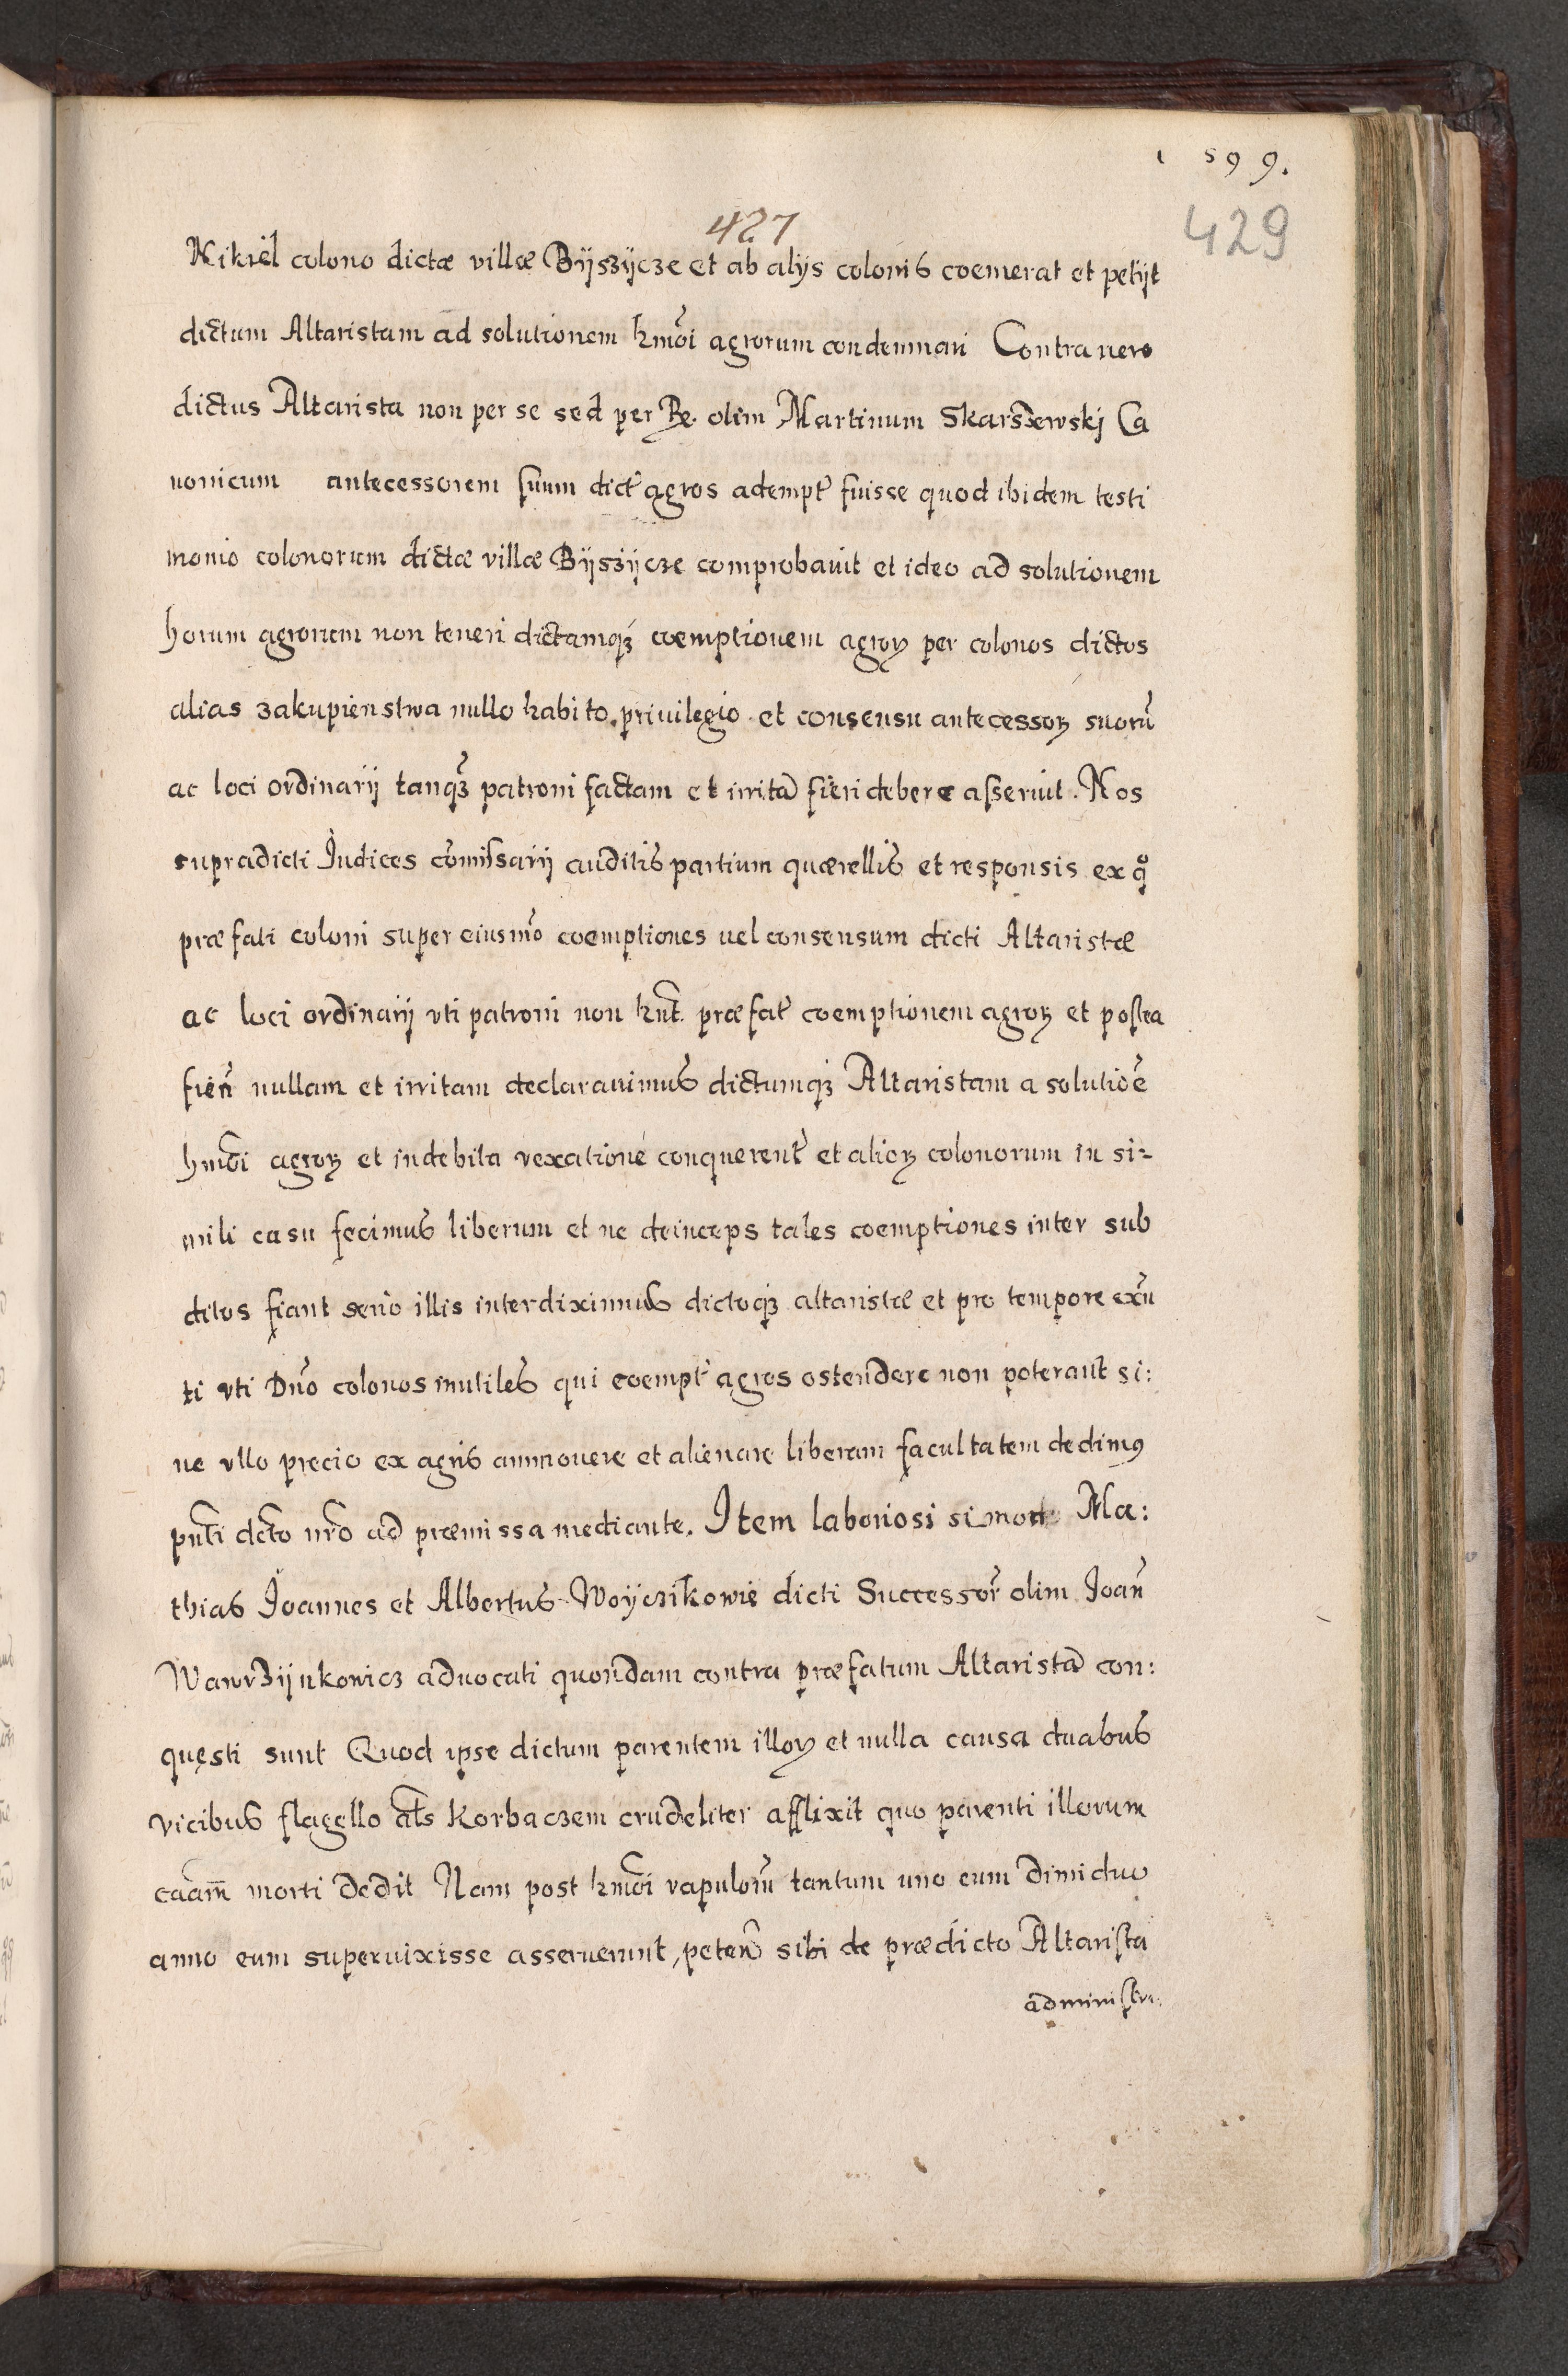 1599.
427
429
Nikiel colono dictæ villæ Bÿszÿcze et ab alÿs colonis coemerat et petÿt
dictum Altaristam ad solutionem hmōi agrorum condemnari Contra uero
dictus Altarista non per se sed per olim Martinum Skarszewskj Ca
nonicum antecessorem suum dict̃ agros adempt̃ fuisse quod ibidem testi
monio colonorum dictæ villæ Bÿszÿcze comprobauit et ideo ad solutionem
horum agrorum non teneri dictamqꝫ coemptionem agroꝝ per colonos dictos
alias zakupienstwa nullo habito priuilegio et consensu antecessoꝝ suorū
ac loci ordinarÿ tanqꝫ patroni factam et irritā fieri debere asseruit. Nos
supradicti Judices com̃issarÿ auditis partium quærellis et responsis ex qͦ
præfati coloni super eiusmō coemptiones uel consensum dicti Altaristæ
ac loci ordinarÿ vti patroni non hn̄t præfat̃ coemptionem agroꝝ et postea
fieñ nullam et irritam declarauimus dictumqꝫ Altaristam a solutiōe
hmōi agroꝝ et indebita vexatione conquerent̃ et alioꝝ colonorum in si-
mili casu fecimus liberum et ne deinceps tales coemptiones inter sub
ditos fiant serio illis interdiximus dictoqꝫ altaristæ et pro tempore exñ
ti vti Dn̄o colonos inutiles qui coempt̃ agros ostendere non poterant si:
ne vllo precio ex agris ammouere et alienare liberam facultatem dedimꝰ
pn̄ti dcto nr̄o ad præmissa mediante. Item laboriosi simon Ma:
thias Joannes et Albertus Woÿczikowie dicti Successor̃ olim Joañ
Wawrzÿnkowicz aduocati quondam contra præfatum Altaristā con:
quęsti sunt Quod ipse dictum parentem illoꝝ et nulla causa duabus
vicibus flagello al̄s Korbaczem crudeliter afflixit quo parenti illorum
cāam morti dedit Nam post hmōi vapulorū tantum uno cum dimidio
anno eum superuixisse asseruerunt, peteñ sibi de prædicto Altarista
administr.